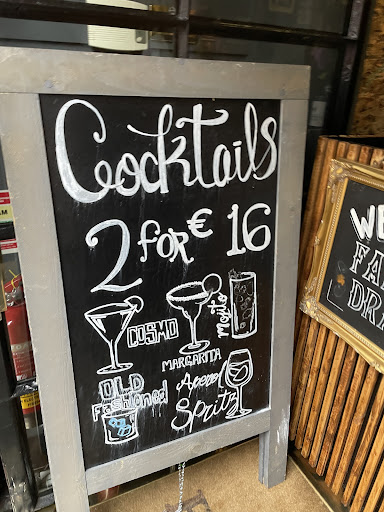 Cocktails
2 for € 16
COSMO
Mojito
MARGARITA
OLD
Fashioned
Aperol
Spritz
WE
FA
DR